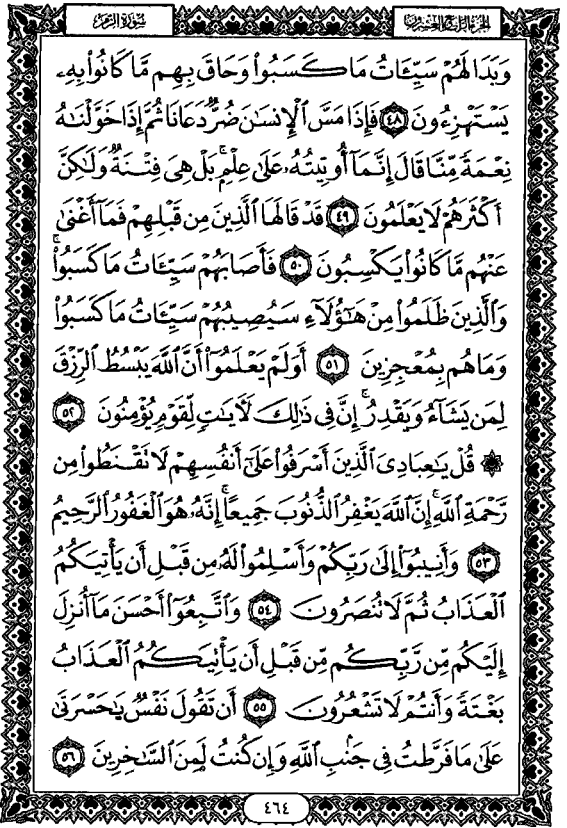 الجزء الرابع والعشرون
سورة الزمر
وَبَدَا لَهُمْ سَيِّئَاتُ مَا كَسَبُوا۟ وَحَاقَ بِهِم مَّا كَانُوا۟ بِهِۦ
يَسْتَهْزِءُونَ ٤٨ فَإِذَا مَسَّ ٱلْإِنسَٰنَ ضُرٌّ دَعَانَا ثُمَّ إِذَا خَوَّلْنَٰهُ
نِعْمَةً مِّنَّا قَالَ إِنَّمَآ أُوتِيتُهُۥ عَلَىٰ عِلْمٍۭ ۚ بَلْ هِىَ فِتْنَةٌ وَلَٰكِنَّ
أَكْثَرَهُمْ لَا يَعْلَمُونَ ٤٩ قَدْ قَالَهَا ٱلَّذِينَ مِن قَبْلِهِمْ فَمَآ أَغْنَىٰ
عَنْهُم مَّا كَانُوا۟ يَكْسِبُونَ ٥٠ فَأَصَابَهُمْ سَيِّئَاتُ مَا كَسَبُوا۟ ۚ
وَٱلَّذِينَ ظَلَمُوا۟ مِنْ هَٰٓؤُلَآءِ سَيُصِيبُهُمْ سَيِّئَاتُ مَا كَسَبُوا۟
وَمَا هُم بِمُعْجِزِينَ ٥١ أَوَلَمْ يَعْلَمُوٓا۟ أَنَّ ٱللَّهَ يَبْسُطُ ٱلرِّزْقَ
لِمَن يَشَآءُ وَيَقْدِرُ ۚ إِنَّ فِى ذَٰلِكَ لَءَايَٰتٍ لِّقَوْمٍ يُؤْمِنُونَ ٥٢
۞ قُلْ يَٰعِبَادِىَ ٱلَّذِينَ أَسْرَفُوا۟ عَلَىٰٓ أَنفُسِهِمْ لَا تَقْنَطُوا۟ مِن
رَّحْمَةِ ٱللَّهِ ۚ إِنَّ ٱللَّهَ يَغْفِرُ ٱلذُّنُوبَ جَمِيعًا ۚ إِنَّهُۥ هُوَ ٱلْغَفُورُ ٱلرَّحِيمُ
٥٣ وَأَنِيبُوٓا۟ إِلَىٰ رَبِّكُمْ وَأَسْلِمُوا۟ لَهُۥ مِن قَبْلِ أَن يَأْتِيَكُمُ
ٱلْعَذَابُ ثُمَّ لَا تُنصَرُونَ ٥٤ وَٱتَّبِعُوٓا۟ أَحْسَنَ مَآ أُنزِلَ
إِلَيْكُم مِّن رَّبِّكُم مِّن قَبْلِ أَن يَأْتِيَكُمُ ٱلْعَذَابُ
بَغْتَةً وَأَنتُمْ لَا تَشْعُرُونَ ٥٥ أَن تَقُولَ نَفْسٌ يَٰحَسْرَتَىٰ
عَلَىٰ مَا فَرَّطتُ فِى جَنۢبِ ٱللَّهِ وَإِن كُنتُ لَمِنَ ٱلسَّٰخِرِينَ ٥٦
٤٦٤